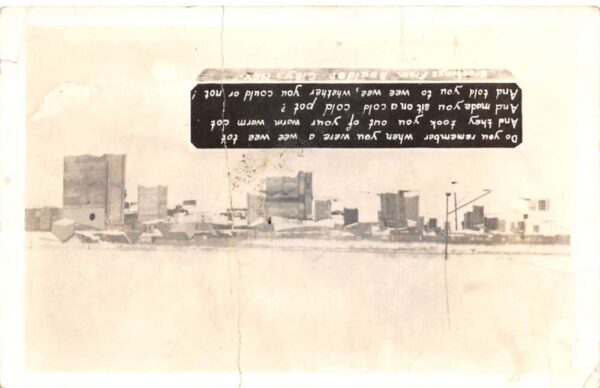 Do you remember when you were a wee wee tot
And they took you out of your warm warm cot
And made you sit on a cold cold pot?
And told you to wee wee, whether you could or not!
Greetings from Boulder City, Nev.